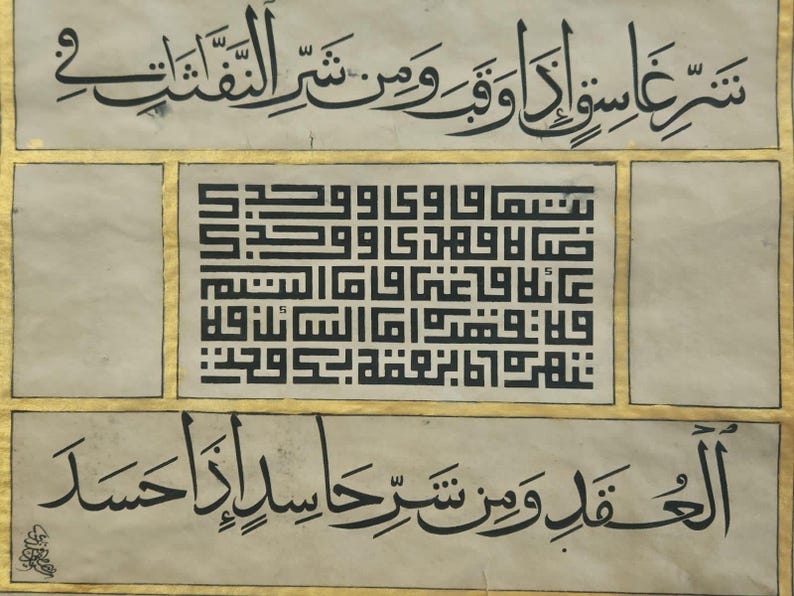 شَرِّ غَاسِقٍ إِذَا وَقَبَ وَمِن شَرِّ ٱلنَّفَّٰثَٰتِ فِي
يتيما فاوى ووجدك
ضالا فهدى ووجدك
عائلا فاغنى فاما اليتيم
فلا تقهر واما السائل فلا
تنهر واما بنعمة ربك فحدث
ٱلْعُقَدِ وَمِن شَرِّ حَاسِدٍ إِذَا حَسَدَ